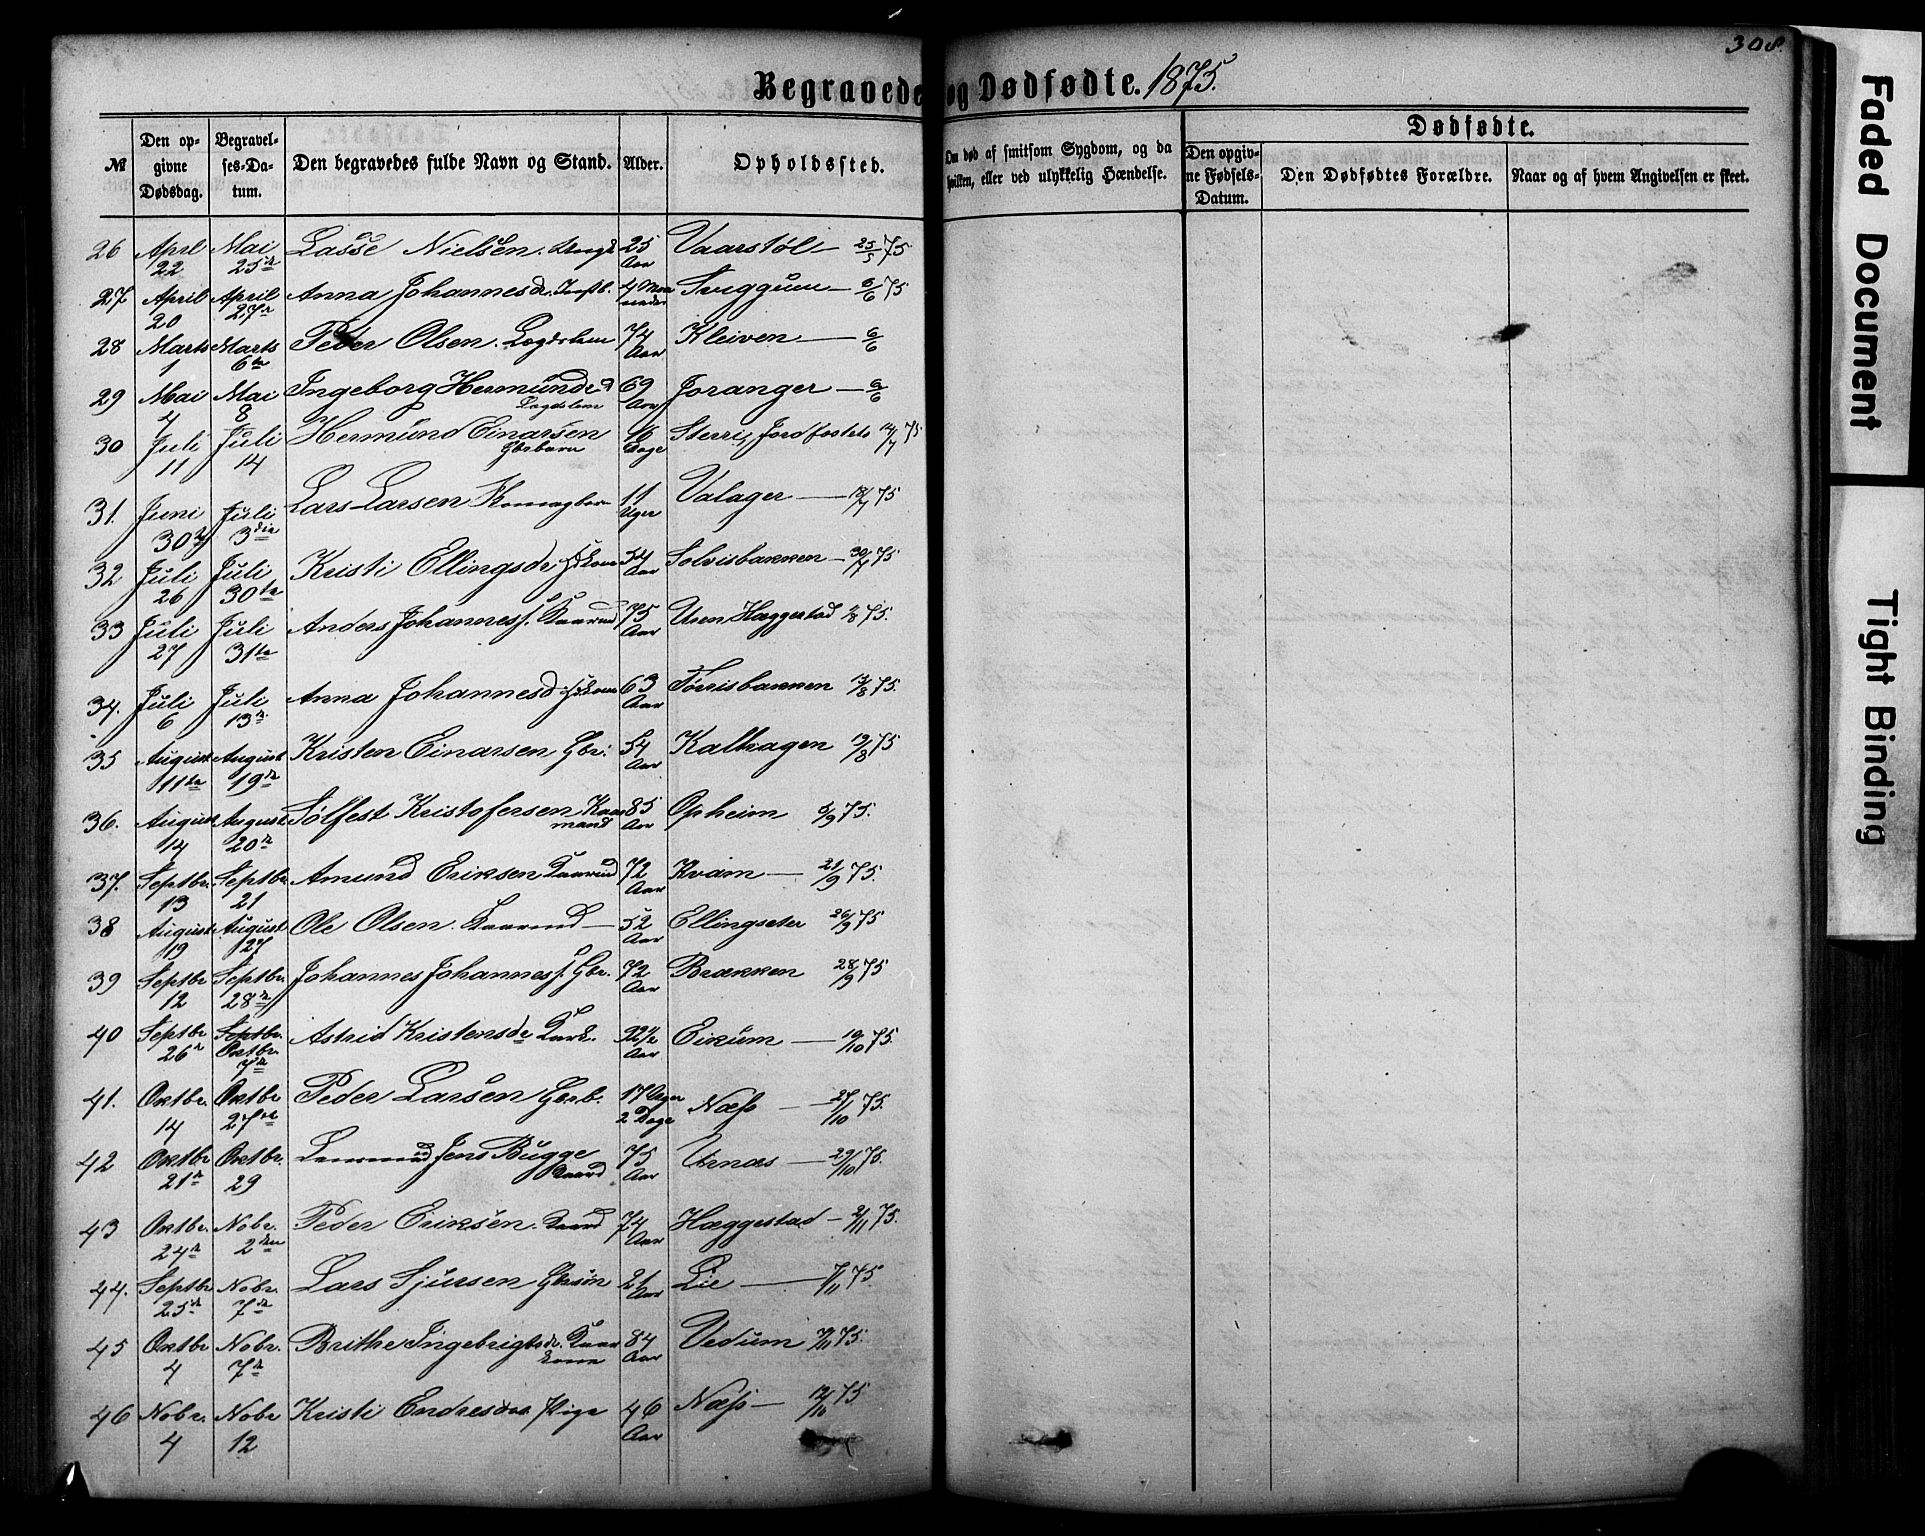 308.
Begravede og Dødfødte. 1875.
№ Den opgivne Dødsdag. Begravelses-Datum. Den begravedes fulde Navn og Stand. Alder. Opholdssted. Om død af smitsom Sygdom, og da hvilken, eller ved ulykkelig Hændelse. Dødfødte. Den opgivne Fødsels-Datum. Den Dødfødtes Forældre. Naar og af hvem Angivelsen er skeet.
26 April 22 Mai 25de Lasse Nielsen. 25 Aar Vaarstøl 25/5 75
27 April 20 April 27de Anna Johannesdr. 4 Maaneder Sviggum 6/6 75
28 Marts Marts 6te Peder Olsen. Lægdslem 74 Aar Kleiven 6/6
29 Mai 4 Mai 8 Ingeborg Hermundsd Lægdslem 69 Aar Joranger 6/6
30 Juli 11 Juli 14 Hermund Einarsen Gbrbarn 16 Dage Sterri, Jordfæstet 14/7 75
31. Juni 30te Juli 3die Lars Larsen 11 Uger Valager 18/7 75
32 Juli 26 Juli 30te Kristi Ellingsdr 54 Aar Solvisbakken 30/7 75
33 Juli 27 Juli 31te Anders Johanness. Kaarmd 75 Aar Uren Hæggestad 2/8 75.
34. Juli 6 Juli 13de Anna Johannesd 63 Aar Tørrisbakken 13/8 75.
35 August 11te August 19de Kristen Einarsen Gbr. 54 Aar Kalhagen 19/8 75
36. August 14 August 20de Sølfest Kristofersen Kaarmand 85 Aar Opheim 5/9 75.
37. Septbr. 13 Septbr. 21 Amund Eriksen Kaarmd 72 Aar Kvam 21/9 75.
38 August 19 August 27 Ole Olsen. Kaarmd 52 Aar Ellingseter 26/9 75
39 Septbr 12 Septbr. 28de Johannes Johanness. Gbr. 72 Aar Brækken 28/9 75
40 Septbr 26de Septbr. Oktbr. 7de Astrid Kristensdr Kark. 92½ Aar Eikum 10/10 75.
41. Oktbr. 14 Oktbr 27de Peder Larsen Gbrb. 17 Uger 2 Dage Næss 27/10 75.
42 Oktbr 21de Oktbr. 29 Lensmand Jens Bugge Kaard 75 Aar Urnæs 29/10 75.
43 Oktbr. 24de Nobr. 2den Peder Eriksen. Kaard 74 Aar Hæggestad 2/11 75.
44. Septbr 25de Nobr. 7de Lars Sjursen Gbrsøn 21 Aar Lie 7/11 75.
45 Oktbr 4 Nobr. 7de Brithe Ingebrigtsdr. Kaarkone 84 Aar Vedum 7/11 75.
46 Nobr. 4 Nobr 12 Kristi Endresdtr Pige 46 Aar Næss 12/10 75
Faded Document
Tight Binding